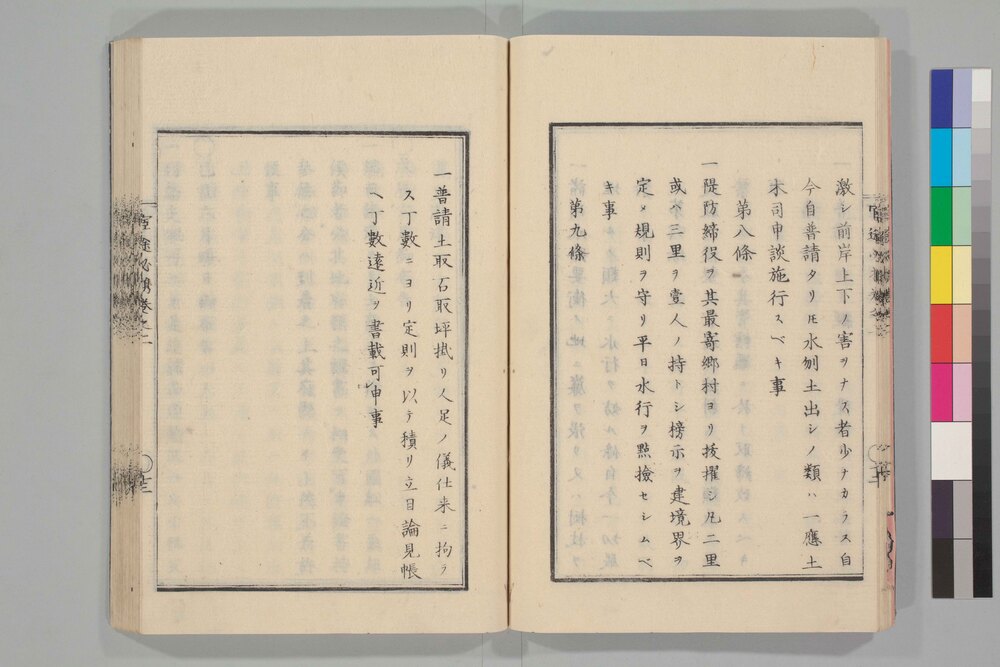 激シ前岸上下ノ害ヲナス者少ナカラス自
今自普請タリ𪜈水刎土出シノ類ハ一應土
木司申談施行スベキ事
第八條
一隄防締役ヲ其最寄郷村ヨリ拔擢シ凡二里
或ハ三里ヲ壹人ノ持トシ榜示ヲ建境界ヲ
定メ規則ヲ守リ平日水行ヲ㸃撿セシムベ
キ事
第九條
一普請土取石取坪掛リ人足ノ儀仕来ニ拘ラ
ス丁數ニヨリ定則ヲ以テ積リ立目論見帳
ヘ丁數遠近ヲ書載可申事